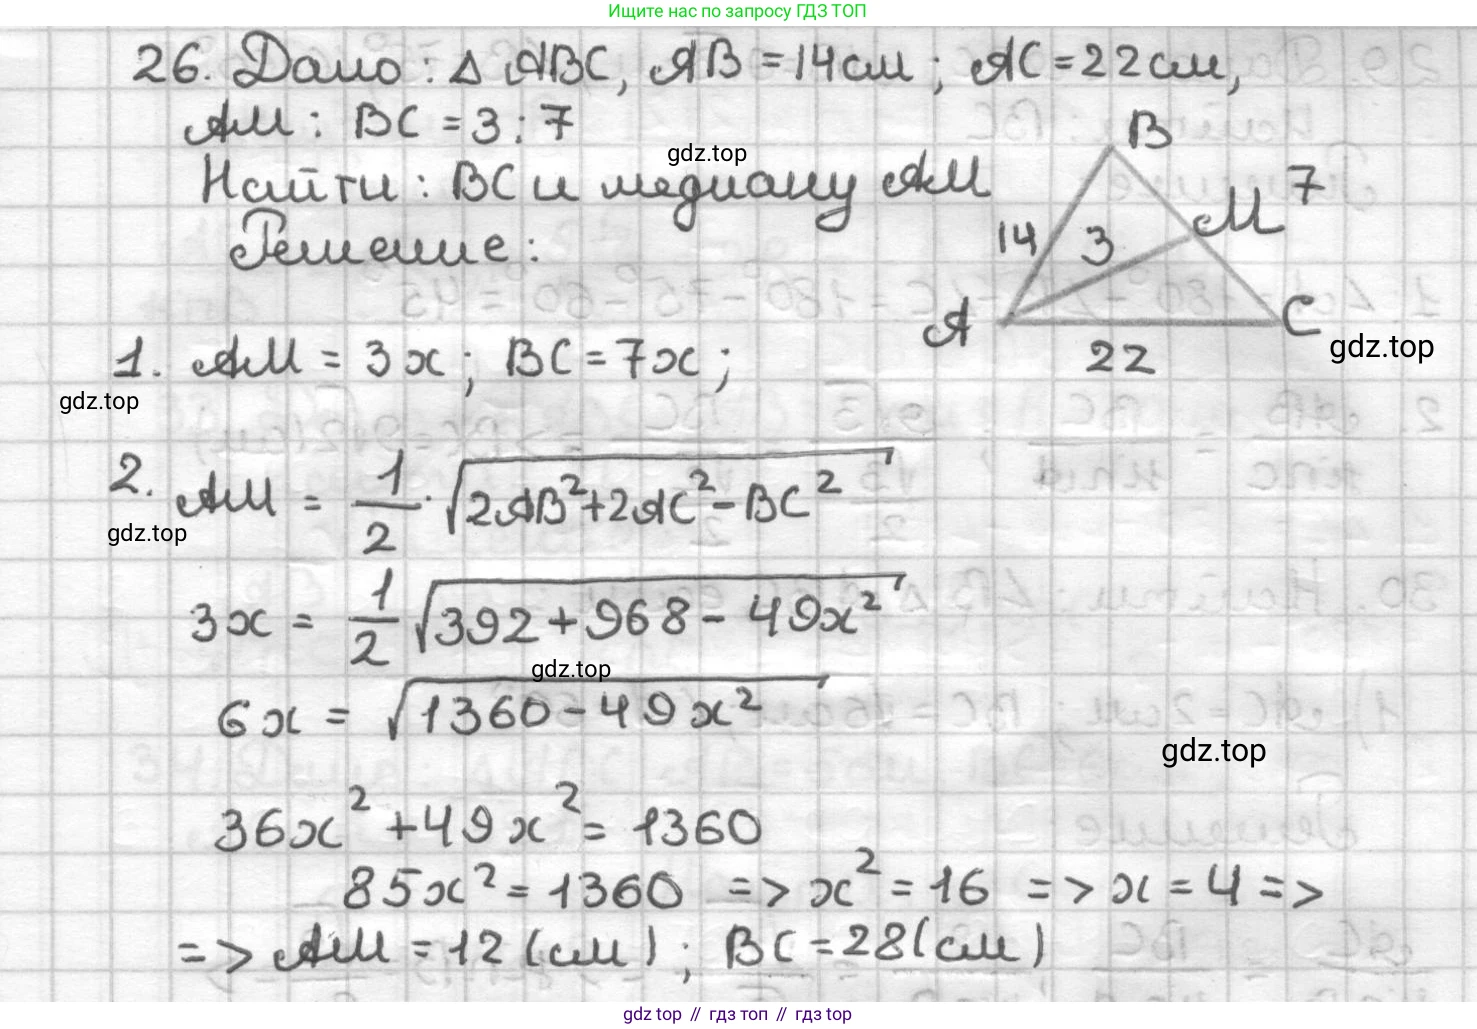 Ищите нас по запросу ГДЗ ТОП
26. Дано: Δ ABC, AB = 14 см; AC = 22 см,
AM : BC = 3 : 7
gdz.top
Найти: BC и медиану AM
Решение:
B
M 7
14 3
A C
22
gdz.top
1. AM = 3x; BC = 7x;
gdz.top
2. AM = 1/2 · √(2AB² + 2AC² - BC²)
gdz.top
3x = 1/2 √(392 + 968 - 49x²)
gdz.top
6x = √(1360 - 49x²)
gdz.top
36x² + 49x² = 1360
85x² = 1360 => x² = 16 => x = 4 =>
=> AM = 12 (см); BC = 28 (см)
gdz.top // гдз топ // гдз top